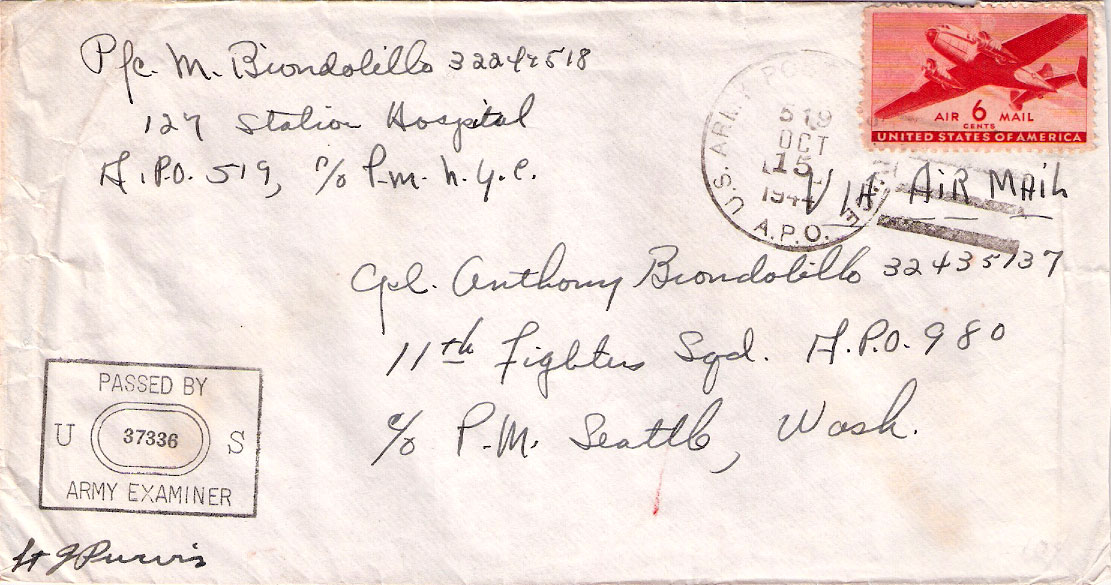 Pfc. M. Biondolillo 32244518
127 Station Hospital
A.P.O. 519, c/o P.M. N.Y.C.
U.S. ARMY POSTAL SERVICE
A.P.O.
519
OCT
15
1944
AIR 6 MAIL
CENTS
UNITED STATES OF AMERICA
VIA AIR MAIL
Cpl. Anthony Biondolillo 32435137
11th Fighter Sqd. A.P.O. 980
c/o P.M. Seattle, Wash.
PASSED BY
U 37336 S
ARMY EXAMINER
Lt J Purvis